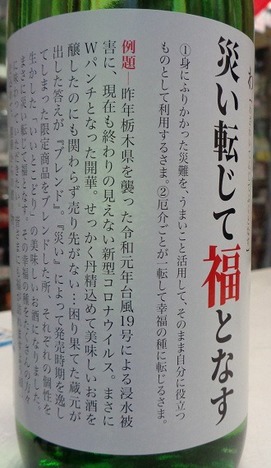 災い転じて福となす
①身にふりかかった災難を、うまいこと活用して、そのまま自分に役立つ
ものとして利用するさま。②厄介ごとが一転して幸福の種に転じるさま。
例題―昨年栃木県を襲った令和元年台風19号による浸水被
害に、現在も終わりの見えない新型コロナウイルス。まさに
Wパンチとなった開華。せっかく丹精込めて美味しいお酒を
醸したのにも関わらず売り先がない…困り果てた蔵元が
出した答えが『ブレンド』。『災い』によって発売時期を逸し
てしまった限定商品をブレンドした所、それぞれの個性を
生かした「いいとこどり」の美味しいお酒になりました。
まさに災い転じて福となす。その幸福の種をたくさんの方々